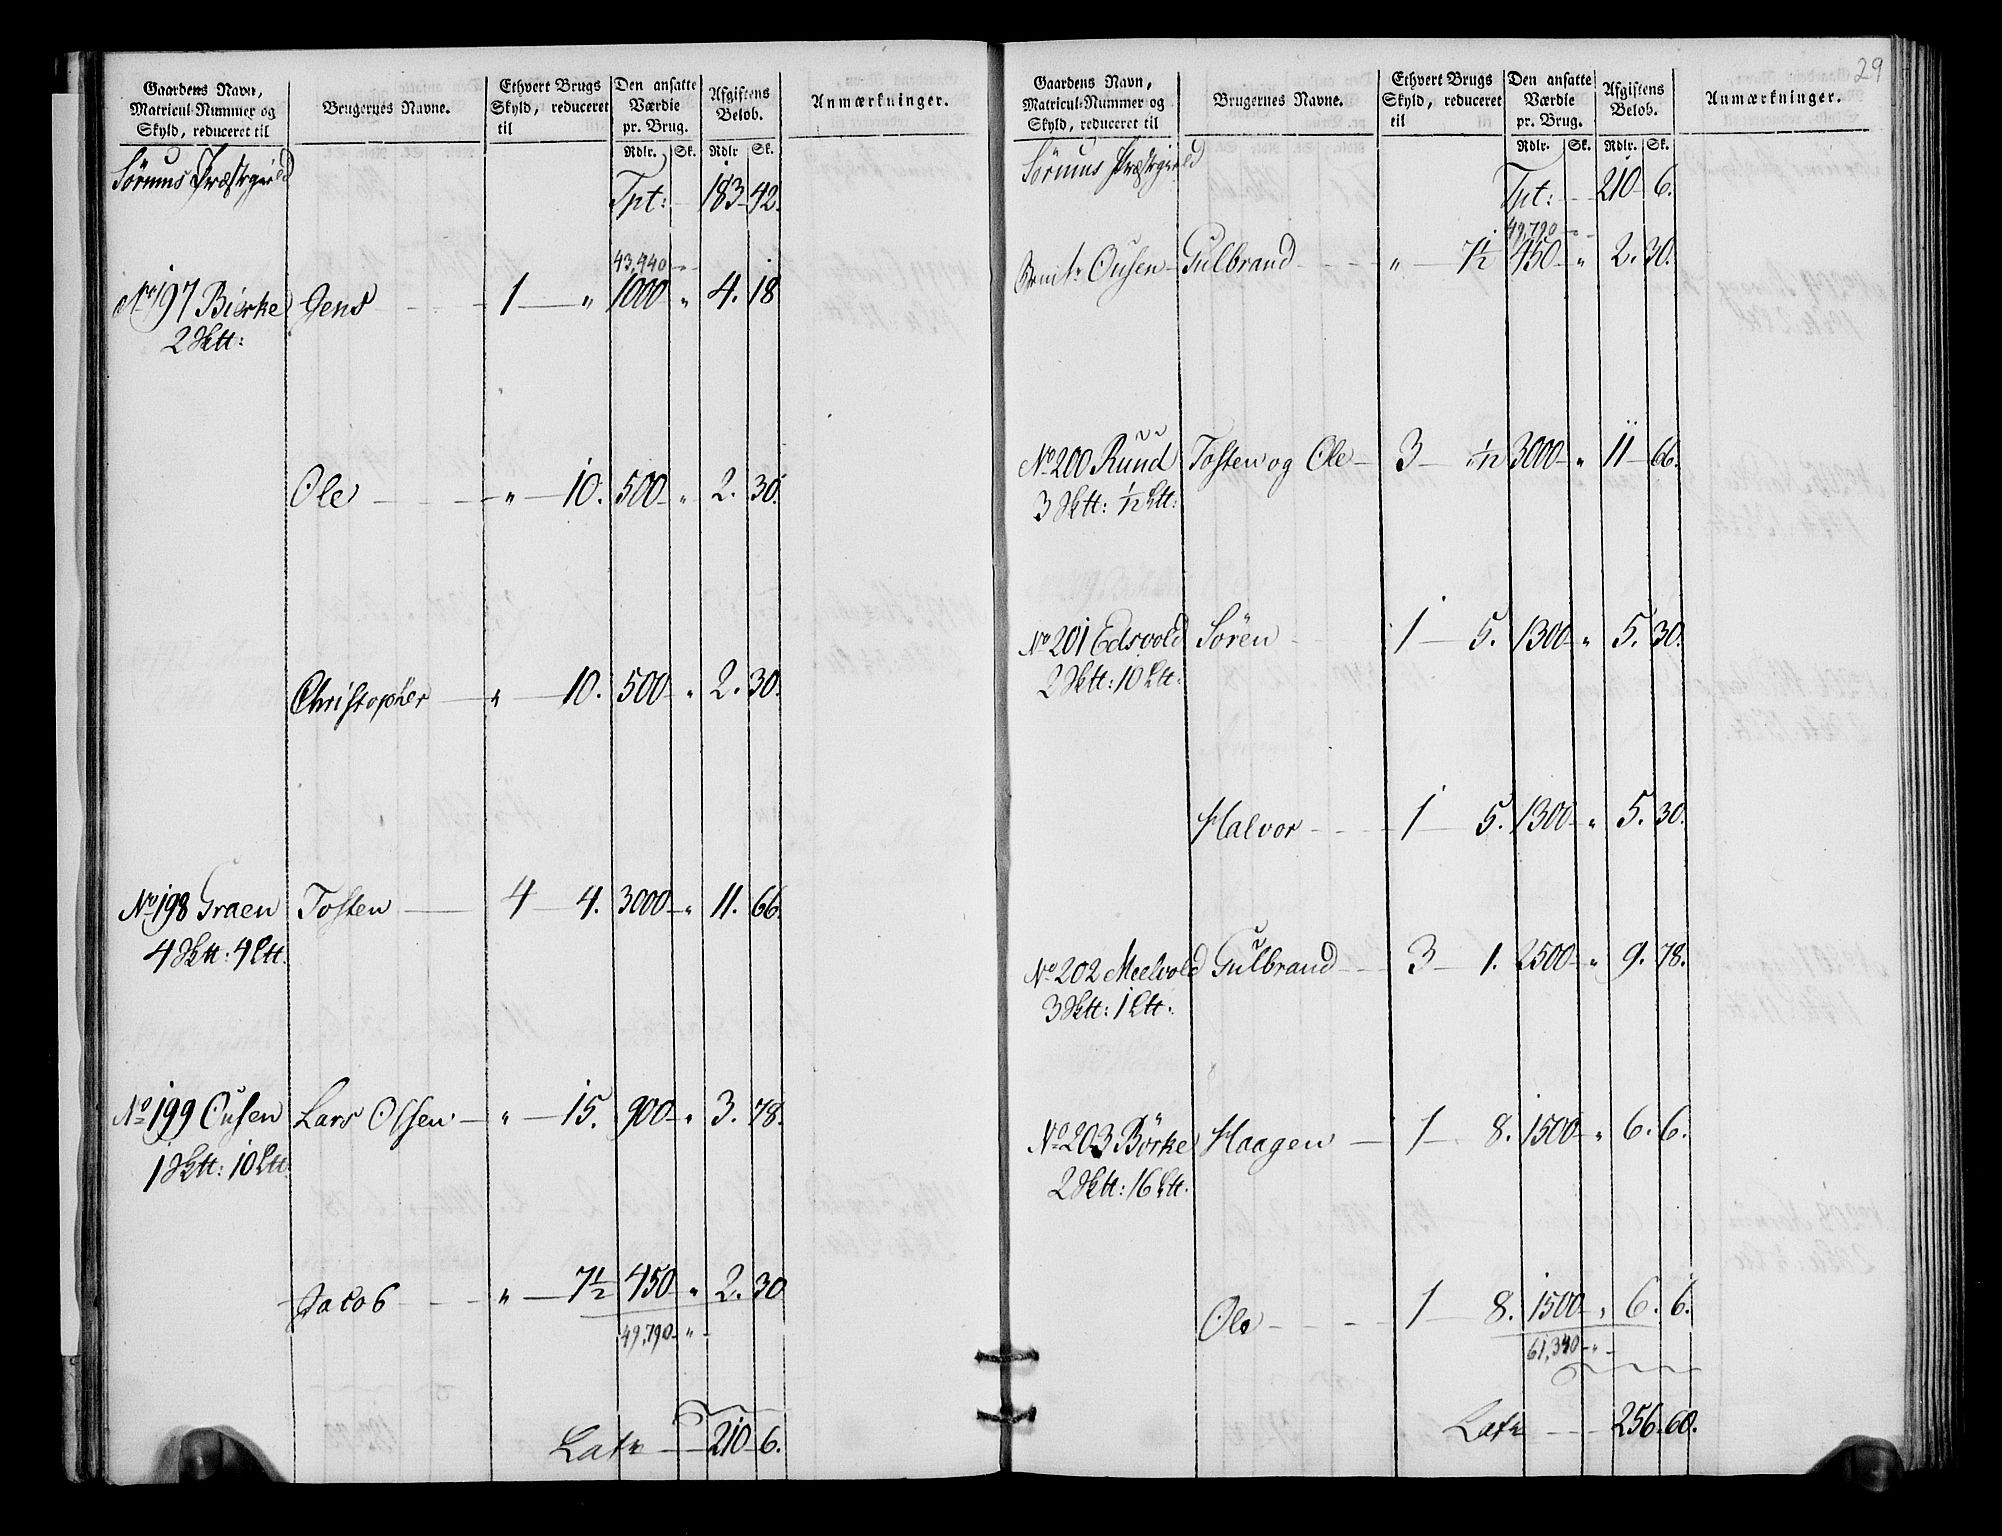 Gaardens Navn, Matricul-Nummer og Skyld, reduceret til | Brugernes Navne. | Ethvert Brugs Skyld, reduceret til | Den ansatte Værdie pr. Brug. | Afgiftens Beløb. | Anmærkninger.
Rdlr. | Sk. | Rdlr | Sk.
Sørums Præstegield
Tpt: 183 42.
43,440 - „ -
No 197 Bierke Jens 1 „ 1000 „ 4. 18
2 Sktt:
Ole „ 10. 500 „ 2. 30.
Christopher „ 10. 500 „ 2. 30.
No 198 Graen Tosten 4 4. 3000 „ 11. 66.
4 Sktt: 4 Ltt.
No 199 Ousen Lars Olsen „ 15. 900 „ 3. 78.
1 Sktt: 10 Ltt.
Jacob „ 7½ 450 „ 2. 30
49,790 - „ -
Late 210 6.
29
Gaardens Navn, Matricul-Nummer og Skyld, reduceret til | Brugernes Navne. | Ethvert Brugs Skyld, reduceret til | Den ansatte Værdie pr. Brug. | Afgiftens Beløb. | Anmærkninger.
Rdlr. | Sk. | Rdlr. | Sk.
Sørums Præstegield
Tpt: 210 6.
49,790 - „ -
Ousen Gulbrand „ 7½ 450 „ 2. 30.
No 200 Ruud Tosten og Ole 3 ½ 3000 „ 11 66.
3 Sktt: ½ Ltt:
No 201 Edsvold Sören 1 5. 1300 „ 5. 30.
2 Sktt: 10 Ltt.
Halvor 1 5. 1300 „ 5. 30.
No 202 Meelvold Gulbrand 3 1. 2500 „ 9. 78.
3 Sktt: 1 Ltt.
No 203 Börke Haagen 1 8. 1500 „ 6. 6.
2 Sktt: 16 Ltt.
Ole 1 8. 1500 „ 6. 6.
61,340 - „ -
Late 256. 60.